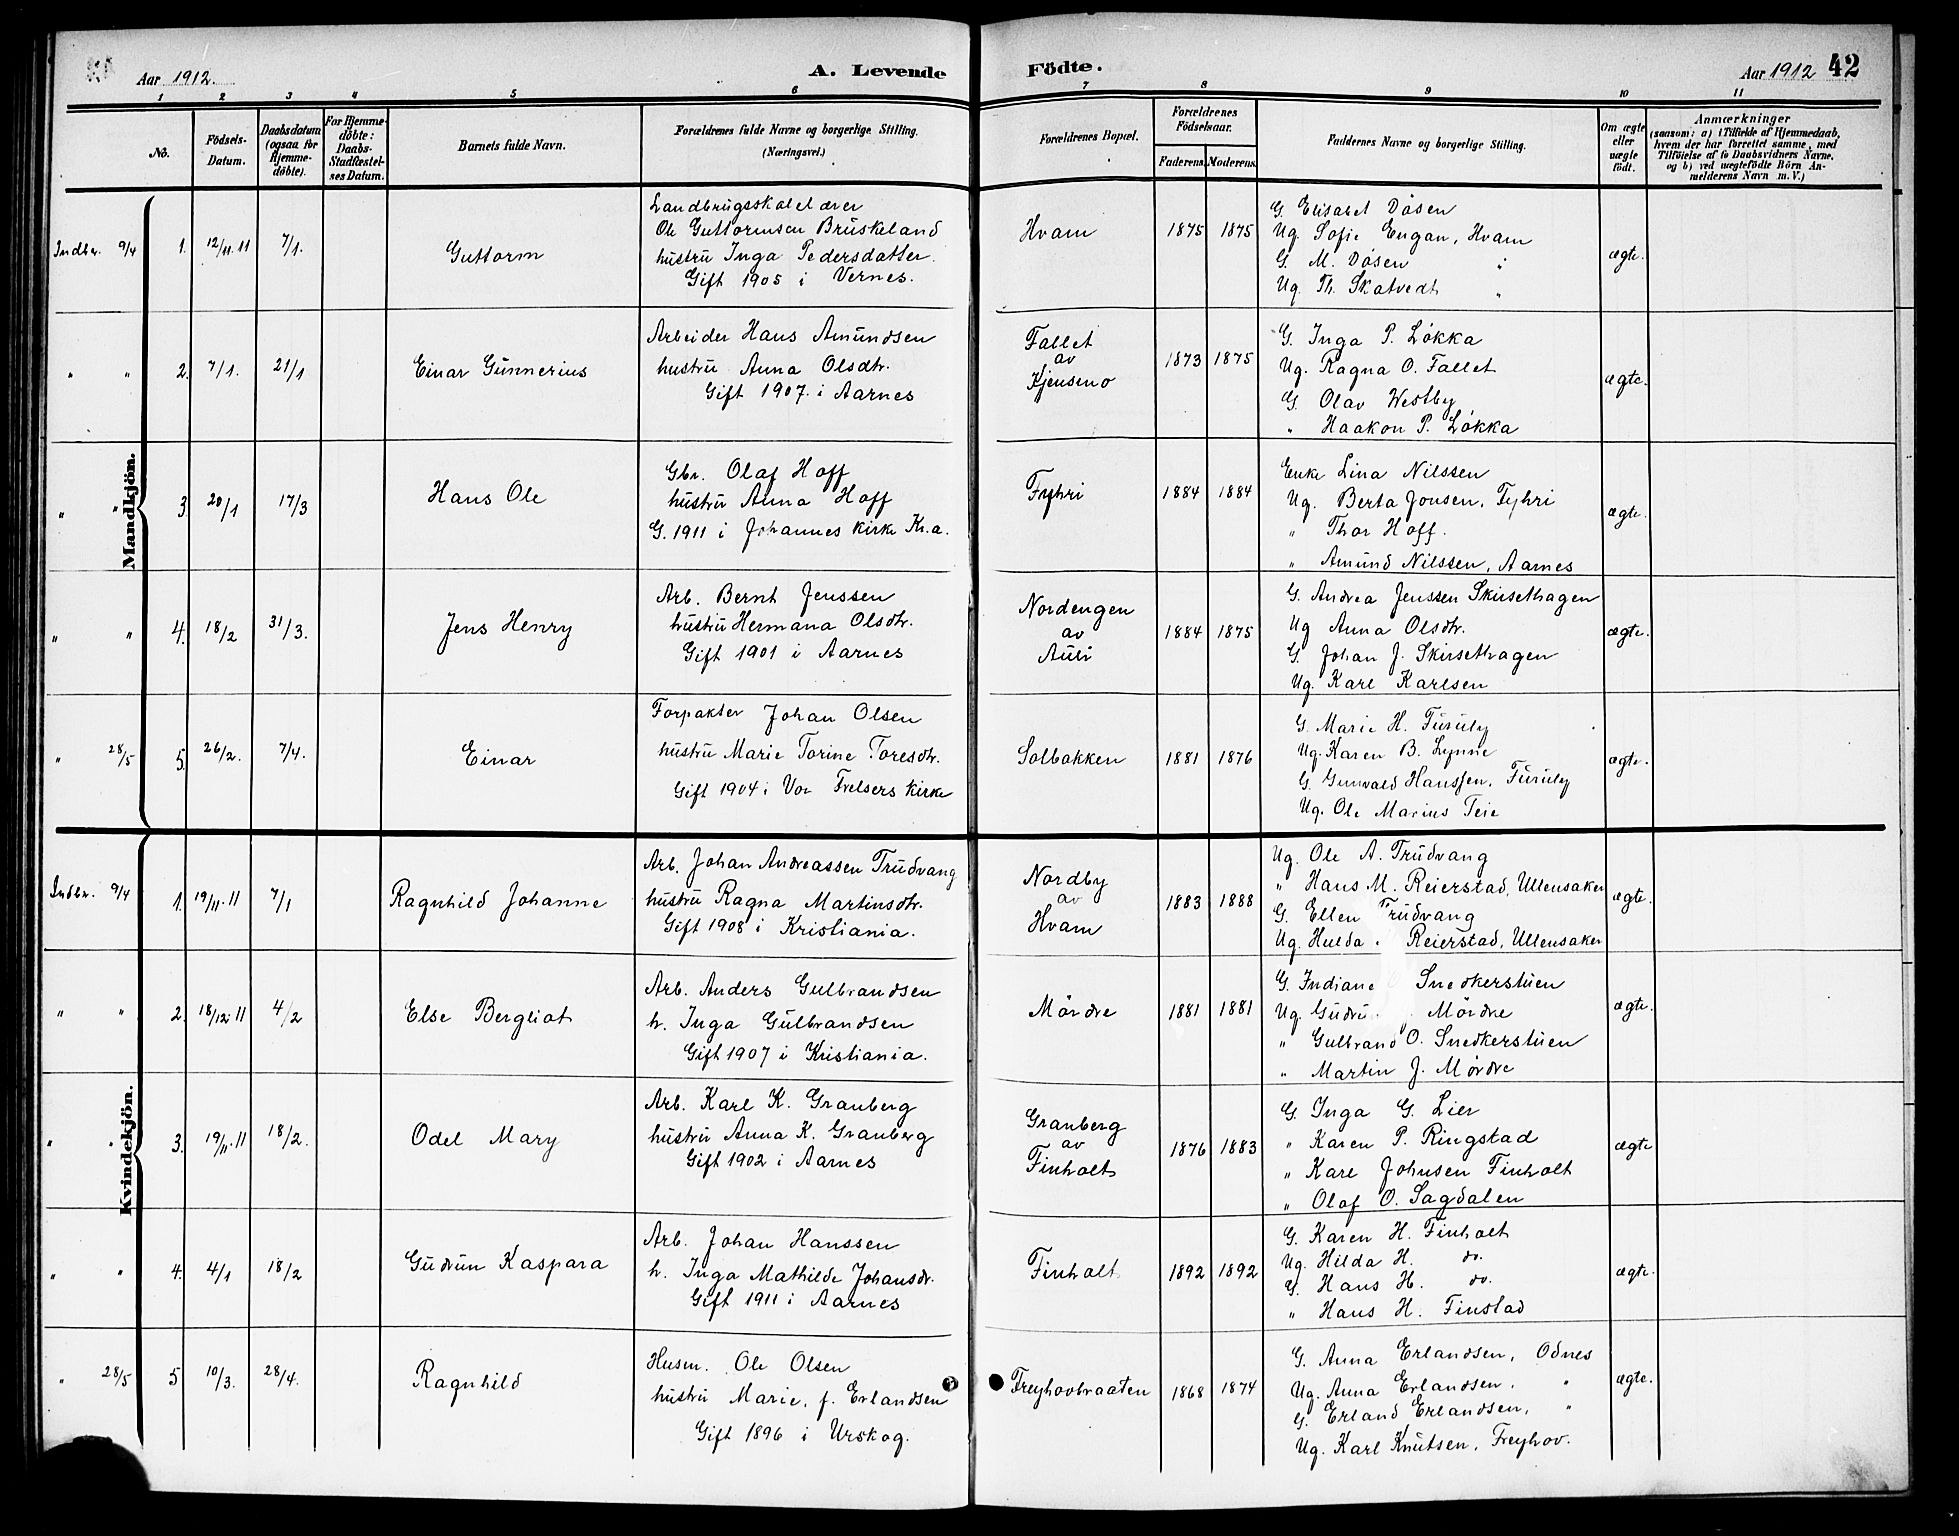 Aar 1912. A. Levende Födte. Aar 1912 42
1 2 3 4 5 6 7 8 9 10 11
No. Födsels-Datum. Daabsdatum (ogsaa for Hjemme-döbte). For Hjemme-döbte: Daabs-Stadfæstel-ses Datum. Barnets fulde Navn. Forældrenes fulde Navne og borgerlige Stilling. (Næringsvei.) Forældrenes Bopæl. Forældrenes Födselsaar. Faderens. Moderens. Faddernes Navne og borgerlige Stilling. Om ægte eller uægte födt. Anmærkninger (saasom: a) i Tilfælde af Hjemmedaab, hvem der har forrettet samme, med Tilföielse af to Daabsvidners Navne, og b) ved uægtefödte Börn An-melderens Navn m. V.)
Mandkjön.
Indbr. 9/4 1. 12/11.11 7/1. Guttorm
Landbrugsskolelærer
Ole Guttormsen Bruskeland
hustru Inga Pedersdatter.
Gift 1905 i Vernes.
Hvam 1875 1875
G. Elisabet Døsen
Ug. Sofie Engan, Hvam
G. M. Døsen "
Ug. Th. Skatvedt "
ægte.
" " 2. 7/1. 21/1 Einar Gunnerius
Arbeider Hans Amundsen
hustru Anna Olsdtr.
Gift 1907. i Aarnes
Fallet
av
Kjensmo
1873 1875
G. Inga P. Løkka
Ug. Ragna O. Fallet
G. Olav Westby
" Haakon P. Løkka
ægte.
" " 3. 20/1 17/3 Hans Ole
Gbr. Olaf Hoff
hustru Anna Hoff
G. 1911 i Johannes kirke Kr.a.
Fyhri 1884 1884
Enke Lina Nilssen
Ug. Berta Jonsen, Fyhri
" Thor Hoff.
" Amund Nilssen, Aarnes
ægte.
" " 4. 18/2 31/3. Jens Henry
Arb. Bernt Jenssen
hustru Hermana Olsdtr.
Gift 1901 i Aarnes
Nordengen
av
Auli
1884 1875
G. Andrea Jenssen Skirsethagen
Ug Anna Olsdtr.
G. Johan J. Skirsethagen
Ug. Karl Karlsen
ægte.
" 28/5 5. 26/2. 7/4. Einar
Forpakter Johan Olsen
hustru Marie Torine Toresdtr.
Gift 1904 i Vor Frelsers kirke
Solbakken 1881 1876
G. Marie H. Furuly
Ug. Karen B. Lynne
G. Gunvald Hanssen, Furuly
Ug. Ole Marius Teie
ægte.
Kvindekjön.
Indbr. 9/4 1. 19/11.11 7/1 Ragnhild Johanne
Arb. Johan Andreassen Trudvang
hustru Ragna Martinsdtr.
Gift 1908 i Kristiania.
Nordby
av
Hvam
1883 1888
Ug. Ole A. Trudvang
" Hans M. Reierstad, Ullensaker
G. Ellen Trudvang
Ug. Hulda Reierstad, Ullensaker
ægte.
" " 2. 18/12.11 4/2 Else Bergliot
Arb. Anders Gulbrandsen
h. Inga Gulbrandsen
Gift 1907 i Kristiania.
Mördre 1881 1881
G. Indiane Snedkerstuen
Ug. Gudru Mördre
" Gulbrand O. Snedkerstuen
" Martin J. Mördre
ægte.
" " 3. 19/11.11 18/2. Odel Mary
Arb. Karl K. Granberg
hustru Anna K. Granberg
Gift 1902 i Aarnes
Granberg
av
Finholt
1876 1883
G. Inga G. Lier
" Karen P. Ringstad
" Karl Johnsen Finholt
" Olaf O. Sagdalen
ægte
" " 4. 4/1 18/2 Gudrun Kaspara
Arb. Johan Hanssen
h. Inga Mathilde Johansdr.
Gift 1911 i Aarnes
Finholt 1892 1892
G. Karen H. Finholt
Ug. Hilda H. do.
G. Hans H. do.
" Hans H. Finstad
ægte.
" 28/5 5 10/3. 28/4. Ragnhild
Husm. Ole Olsen
hustru Marie, f. Erlandsen
Gift 1896 i Urskog.
Freyhovbraaten 1868 1874
G. Anna Erlandsen, Odnes
Ug. Anna Erlandsen, "
G. Erland Erlandsen, "
Ug. Karl Knutsen, Freyhov.
ægte.